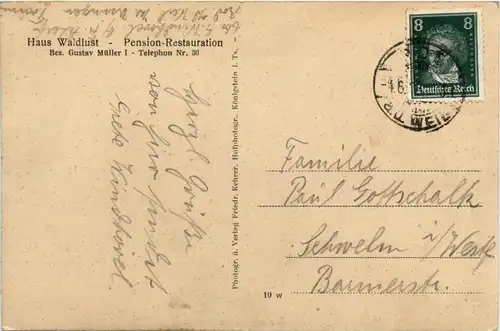 Haus Waldlust - Pension-Restauration
Bes. Gustav Müller I - Telephon Nr. 30
Herzl. Grüße
von hier sendet
Grete Windhövel
Photogr. u. Verlag Friedr. Kehrer, Hofphotogr., Königstein i. Ts.
8 8
Deutsches Reich
a.d. WEIL
Familie
Paul Gottschalk
Schwelm i/Westf
Barmerstr.
10 w